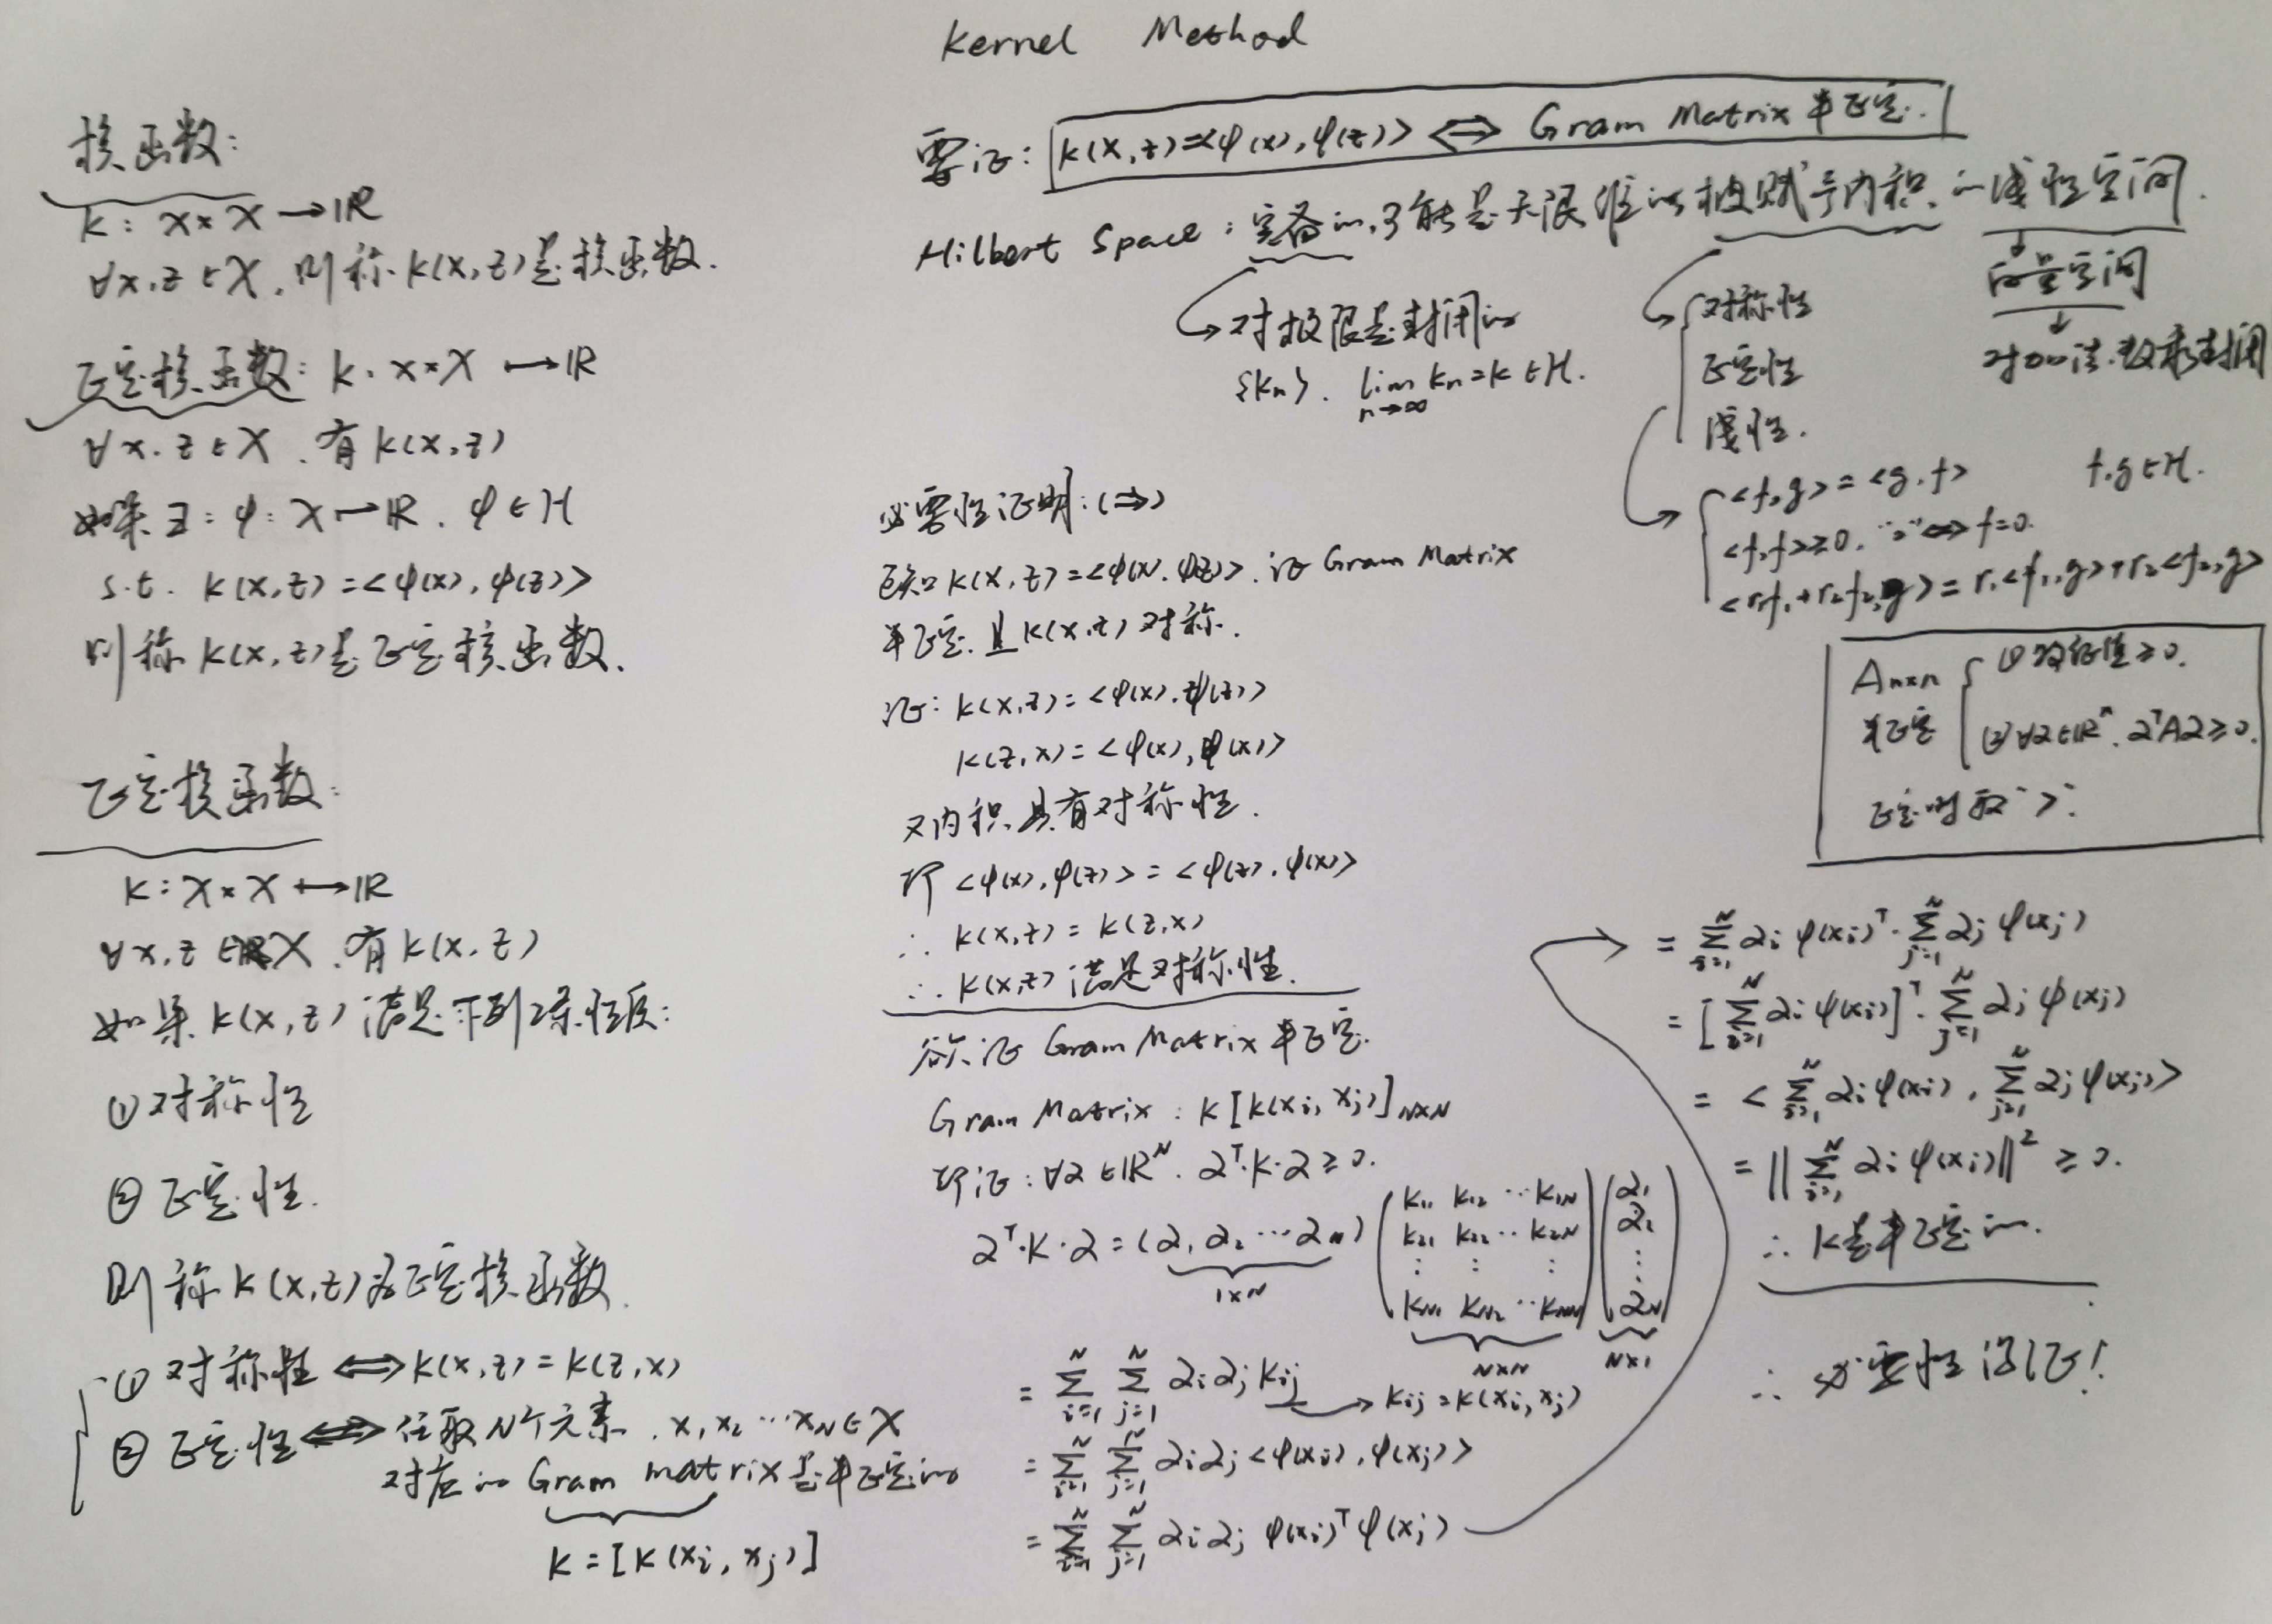 Kernel Method
核函数:
K: X×X→ℝ
∀x,z∈X,则称K(x,z)是核函数.
正定核函数: K: X×X ↦ ℝ
∀x,z∈X,有K(x,z)
如果∃: φ: X ↦ ℝ, φ∈H
s.t. K(x,z)=<φ(x),φ(z)>
则称K(x,z)是正定核函数.
正定核函数:
K: X×X ↦ ℝ
∀x,z∈X,有K(x,z)
如果K(x,z)满足下列2条性质:
①对称性
②正定性.
则称K(x,z)为正定核函数.
①对称性 ⇔ K(x,z)=K(z,x)
②正定性 ⇔ 任取N个元素,x₁x₂⋯x_N∈X
对应的Gram matrix是半正定的
K=[K(xᵢ,xⱼ)]
要证: K(x,z)=<φ(x),φ(z)> ⇔ Gram Matrix半正定.
Hilbert Space: 完备的,可能是无限维的被赋予内积的线性空间.
对极限是封闭的
{Kn}. lim n→∞ Kn=K∈H.
对称性
正定性
线性.
向量空间
对加法.数乘封闭
<f,g>=<g,f> f,g∈H.
<f,f>≥0. "="⇔f=0.
<r₁f₁+r₂f₂,g>=r₁<f₁,g>+r₂<f₂,g>
A n×n 半正定
①特征值≥0.
②∀α∈ℝⁿ. αᵀAα≥0.
正定时取">".
必要性证明:(⇒)
已知K(x,z)=<φ(x),φ(z)>.证Gram Matrix
半正定.且K(x,z)对称.
证: K(x,z)=<φ(x),φ(z)>
K(z,x)=<φ(x),φ(x)>
又内积具有对称性.
即<φ(x),φ(z)>=<φ(z),φ(x)>
∴ K(x,z)=K(z,x)
∴ K(x,z)满足对称性.
欲证Gram Matrix半正定.
Gram Matrix: K[K(xᵢ,xⱼ)]N×N
即证:∀α∈ℝᴺ. αᵀ·K·α≥0.
αᵀ·K·α=(α₁ α₂⋯α_N)
K₁₁ K₁₂ ⋯ K₁N α₁
K₂₁ K₂₂ ⋯ K₂N α₂
⋮ ⋮ ⋮ ⋮
K_N₁ K_N₂ ⋯ K_NN α_N
1×N N×N N×1
=∑ᵢ₌₁ᴺ ∑ⱼ₌₁ᴺ αᵢαⱼKᵢⱼ → Kᵢⱼ=K(xᵢ,xⱼ)
=∑ᵢ₌₁ᴺ ∑ⱼ₌₁ᴺ αᵢαⱼ<φ(xᵢ),φ(xⱼ)>
=∑ᵢ₌₁ᴺ ∑ⱼ₌₁ᴺ αᵢαⱼ φ(xᵢ)ᵀφ(xⱼ)
=∑ᵢ₌₁ᴺ αᵢφ(xᵢ)ᵀ·∑ⱼ₌₁ᴺ αⱼφ(xⱼ)
=[∑ᵢ₌₁ᴺ αᵢφ(xᵢ)]ᵀ·∑ⱼ₌₁ᴺ αⱼφ(xⱼ)
=<∑ᵢ₌₁ᴺ αᵢφ(xᵢ),∑ⱼ₌₁ᴺ αⱼφ(xⱼ)>
=‖∑ᵢ₌₁ᴺ αᵢφ(xᵢ)‖²≥0.
∴ K是半正定的.
∴ 必要性得证!